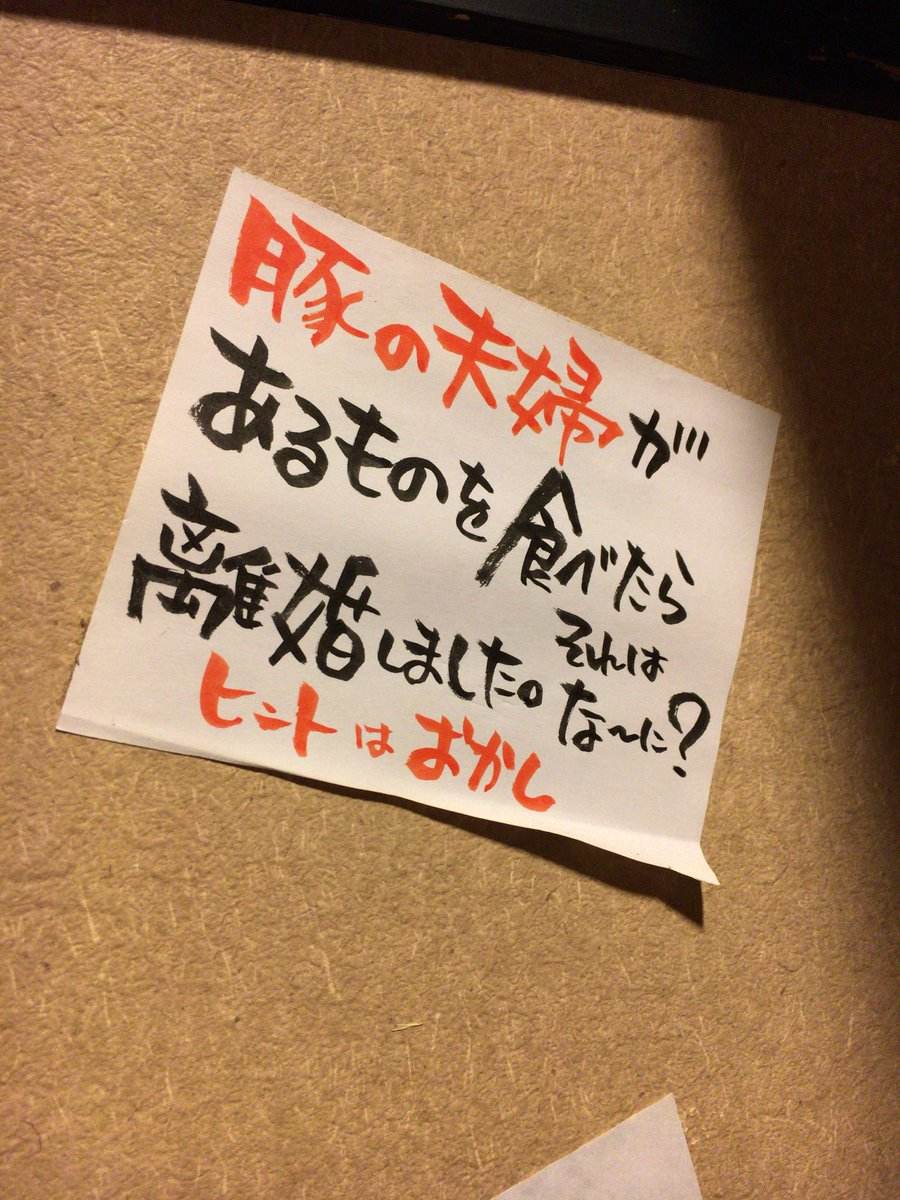 豚の夫婦が
あるものを食べたら
離婚しました。それは
な〜に?
ヒントはおかし